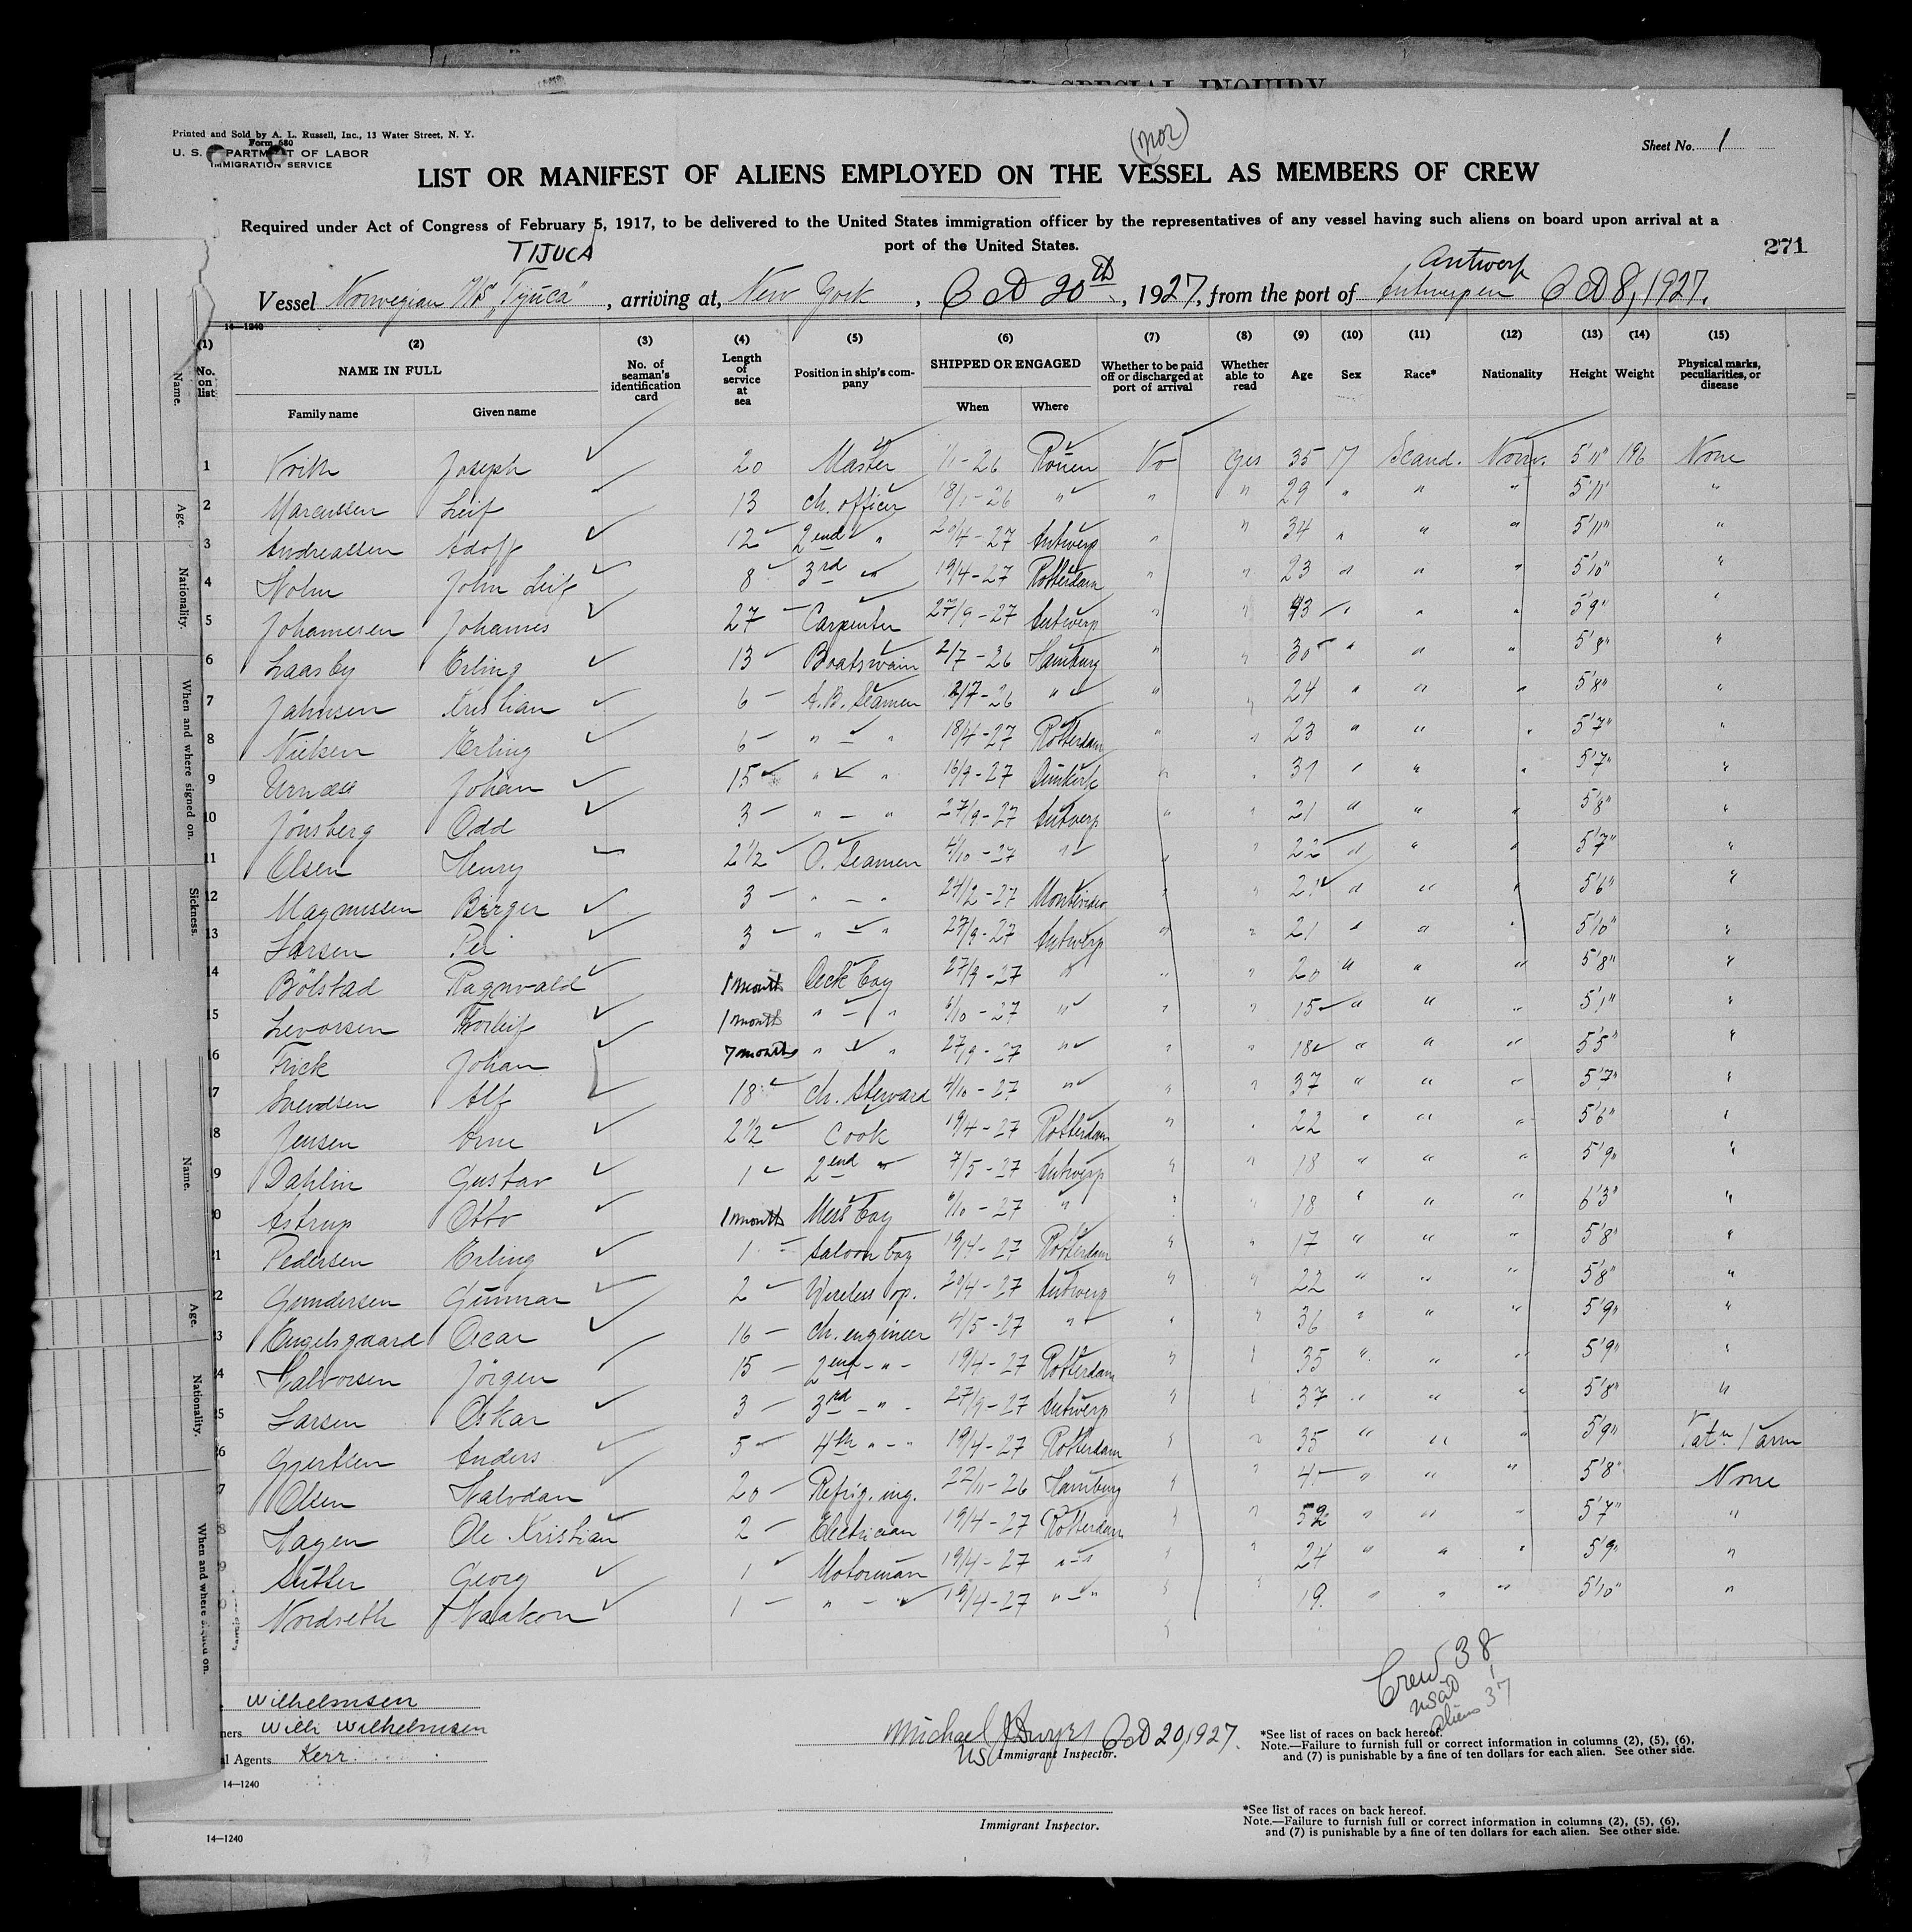 FOR SPECIAL INQUIRY
Printed and Sold by A. L. Russell, Inc., 13 Water Street, N. Y.
Form 680
U. S. DEPARTMENT OF LABOR
IMMIGRATION SERVICE
(nor)
Sheet No. 1
LIST OR MANIFEST OF ALIENS EMPLOYED ON THE VESSEL AS MEMBERS OF CREW
Required under Act of Congress of February 5, 1917, to be delivered to the United States immigration officer by the representatives of any vessel having such aliens on board upon arrival at a
port of the United States.
271
TIJUCA
Antwerp
Vessel Norwegian M/S "Tijuca", arriving at, New York, Oct 20th, 1927, from the port of Antwerpen Oct 8, 1927.
14—1240
(1) (2) (3) (4) (5) (6) (7) (8) (9) (10) (11) (12) (13) (14) (15)
No. on list NAME IN FULL No. of seaman's identification card Length of service at sea Position in ship's company SHIPPED OR ENGAGED Whether to be paid off or discharged at port of arrival Whether able to read Age Sex Race* Nationality Height Weight Physical marks, peculiarities, or disease
Family name Given name When Where
1 Joseph 20 Master 1/1-26 Rouen No yes 35 M Scand. Norw. 5'11" 196 None
2 Marcussen Leif 13 ch. officer 18/1-26 " " " 29 " " " 5'11" "
3 Andreassen Adolf 12 2end " 20/4-27 Antwerp " " 34 " " " 5'11" "
4 Holm John Leif 8 3rd " 19/4-27 Rotterdam " " 23 " " " 5'10" "
5 Johannesen Johannes 27 Carpenter 27/9-27 Antwerp " " 43 " " " 5'9" "
6 Laasby Erling 13 Boatswain 2/7-26 Hamburg " " 30 " " " 5'8" "
7 Jahnsen Kristian 6 A.B. Seamen 2/7-26 " " " 24 " " " 5'8" "
8 Nielsen Erling 6 " - " 18/4-27 Rotterdam " " 23 " " " 5'7" "
9 Johan 15 " " 16/9-27 Dunkirk " " 31 " " " 5'7" "
10 Jönsberg Odd 3 " - " 27/9-27 Antwerp " " 21 " " " 5'8" "
11 Olsen Henry 2 1/2 O. Seamen 4/10-27 " " " 22 " " " 5'7" "
12 Magnussen Birger 3 " - " 24/2-27 Montevideo " " " " " 5'6" "
13 Larsen Per 3 " - " 27/9-27 Antwerp " " 21 " " " 5'10" "
14 Bölstad Ragnvald 1 month Deck boy 27/9-27 " " " 20 " " " 5'8" "
15 Levorsen Thorleif 1 month " - " 6/10-27 " " " 15 " " " 5'1" "
16 Frick Johan 7 months " " 27/9-27 " " " 18 " " " 5'5" "
17 Svendsen Alf 18 ch. Steward 4/10-27 " " " 37 " " " 5'7" "
18 Jensen Arne 2 1/2 Cook 19/4-27 Rotterdam " " 22 " " " 5'6" "
19 Dahlin Gustav 1 2end " 7/5-27 Antwerp " " 18 " " " 5'9" "
20 Astrup Otto 1 month Mess boy 6/10-27 " " " 18 " " " 6'3" "
21 Pedersen Erling 1 Saloon boy 19/4-27 Rotterdam " " 17 " " " 5'8" "
22 Gundersen Gunnar 2 Wireless op. 20/4-27 Antwerp " " 22 " " " 5'8" "
23 Engelsgaard Oscar 16 ch. engineer 4/5-27 " " " 36 " " " 5'9" "
24 Halvorsen Jörgen 15 2end - " - 19/4-27 Rotterdam " " 35 " " " 5'9" "
25 Larsen Oskar 3 3rd - " - 27/9-27 Antwerp " " 37 " " " 5'8" "
26 Gjertsen Anders 5 4th - " - 19/4-27 Rotterdam " " 35 " " " 5'9" arm
27 Olsen Halvdan 20 Refrig. ing. 22/11-26 Hamburg " " " " " 5'8" None
28 Hagen Ole Kristian 2 Electrician 19/4-27 Rotterdam " " 52 " " " 5'7" "
29 Sutter Georg 1 Motorman 19/4-27 " - " " " 24 " " " 5'9" "
30 Nordseth Haakon 1 " - " 19/4-27 " - " " " 19 " " " 5'10" "
Crew 38
USAD 1
Aliens 37
Wilhelmsen
ners Wilh Wilhelmsen
l Agents Kerr
Michael J Dwyer Oct 20, 1927.
US Immigrant Inspector.
*See list of races on back hereof.
Note.—Failure to furnish full or correct information in columns (2), (5), (6),
and (7) is punishable by a fine of ten dollars for each alien. See other side.
14—1240
Immigrant Inspector.
*See list of races on back hereof.
Note.—Failure to furnish full or correct information in columns (2), (5), (6),
and (7) is punishable by a fine of ten dollars for each alien. See other side.
14—1240
Name.
Age.
Nationality.
When and where signed on.
Sickness.
Name.
Age.
Nationality.
When and where signed on.